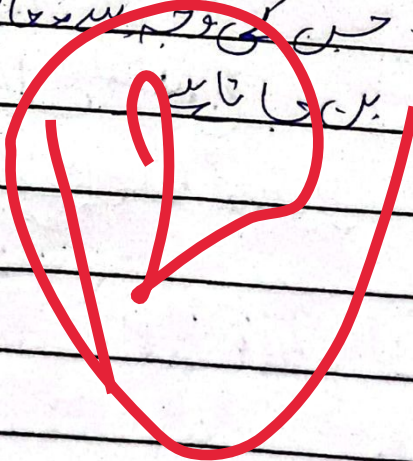 جس کی وجہ سے
بن جاتا ہے